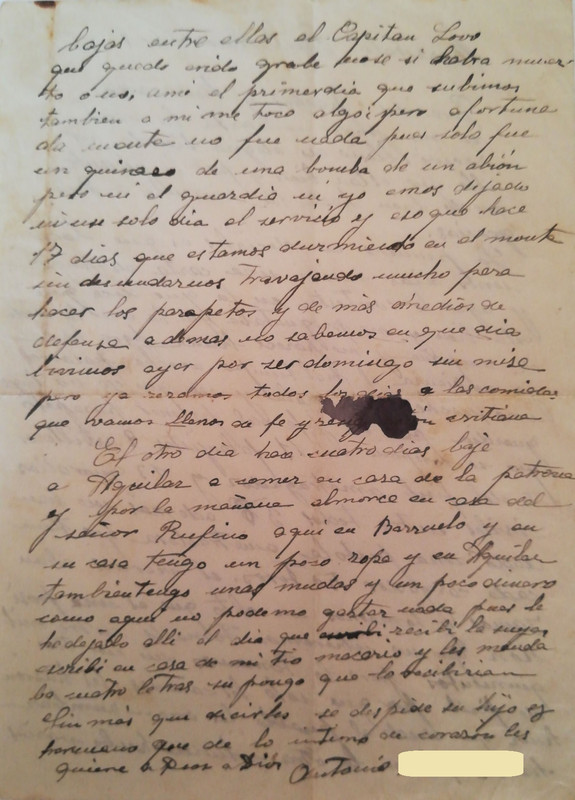 bajas entre ellas el Capitan Lovo
que quedo erido grabe nose si habra muer
to o no, ami el primer dia que subimos
tambien a mi me toco algo; pero afortuna
da mente no fue nada pues solo fue
un de una bomba de un abión
pero ni el guardia ni yo emos dejado
ni un solo dia el servicio y eso que hace
17 dias que estamos durmiendo en el monte
sin desnudarnos travajando mucho para
hacer los parapetos y de más omedios de
defensa ademas no sabemos en que dia
bivimos ayer por ser domingo sin misa
pero ya rezamos todos los dias a las comidas
que vamos llenos de fe y critiana
El otro dia hace cuatro dias baje
a Aguilar a comer en casa de la patrona
y por la mañana almorce en casa del
señor Rufino aqui en Barruelo y en
su casa tengo un poco ropa y en Aguilar
tambien tengo unas mudas y un poco dinero
como aqui no podemo gastar nada pues le
he dejallo alli el dia que recibi la suya
escribi en casa de mi tio macario y les manda
ba cuatro letras su pongo que lo recibirian
Sin más que dicirles se despide su hijo y
hermano que de lo intimo de corazón les
quiere a Dios a Dios Antonio